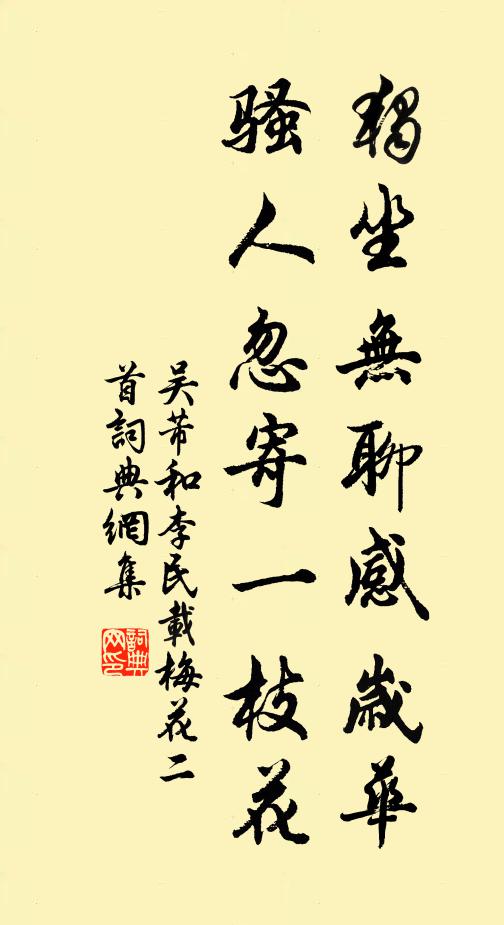 獨坐無聊感歲華
騷人忽寄一枝花
吴芾和李民載梅花二
首詞典網集
詞典网印